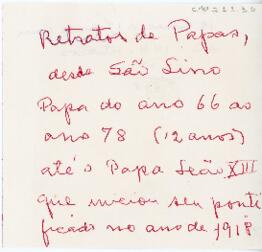 Retratos de Papas,
desde São Lino
Papa do ano 66 ao
ano 78 (12 anos)
até o Papa Leão XIII
que iniciou seu ponti
ficado no ano de 1918